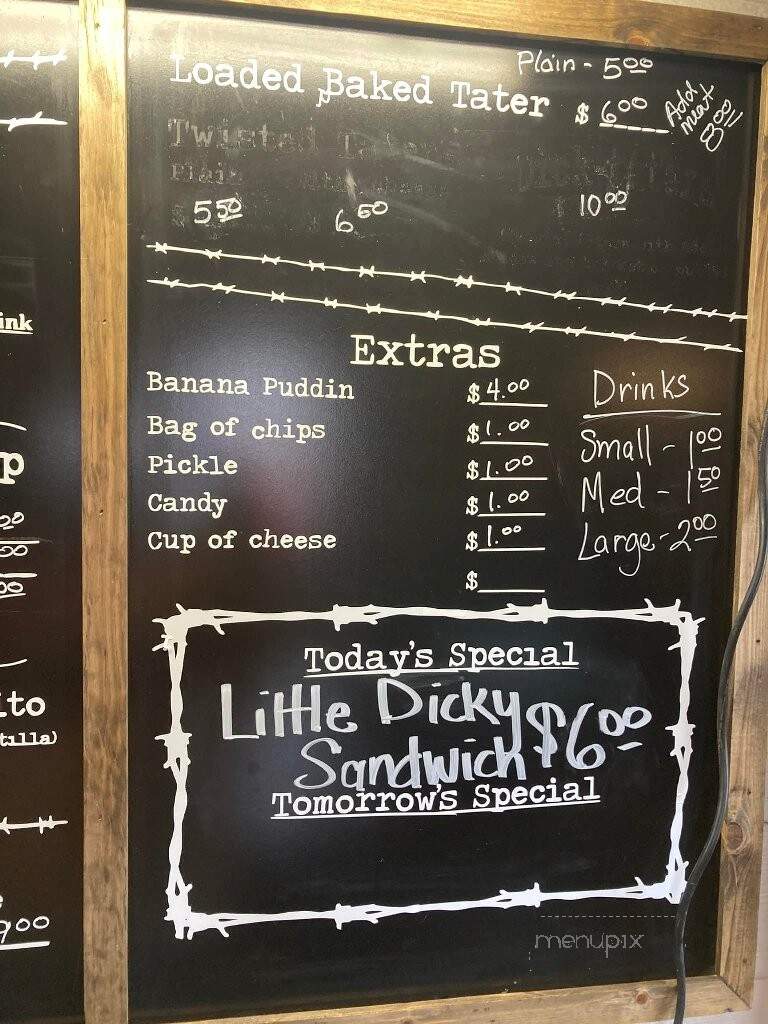 Plain - 5.00
Loaded Baked Tater $ 6.00 Add meat 8.00
Twisted
Plain
5.50 6.50 10.00
ink
Extras
Banana Puddin $ 4.00
Bag of chips $ 1.00
Pickle $ 1.00
Candy $ 1.00
Cup of cheese $ 1.00
$
Drinks
Small - 1.00
Med - 1.50
Large - 2.00
p
ito
tilla)
9.00
Today's Special
Little Dicky
Sandwich $6.00
Tomorrow's Special
menupix